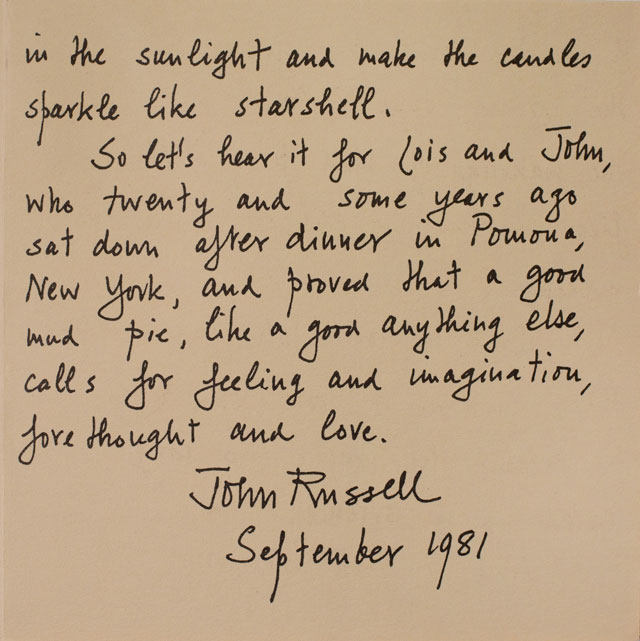 in the sunlight and make the candles
sparkle like starshell.
So let's hear it for Lois and John,
who twenty and some years ago
sat down after dinner in Pomona,
New York, and proved that a good
mud pie, like a good anything else,
calls for feeling and imagination,
forethought and love.
John Russell
September 1981